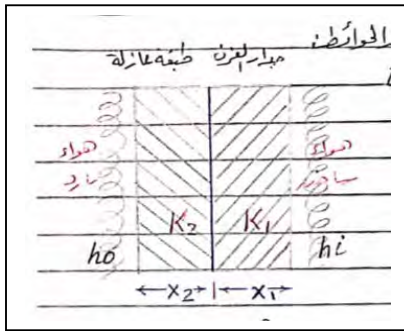 الحوائط
جدار الفرن طبقة عازلة
هواء هواء
ساخن بارد
K2 K1
ho hi
x2 x1